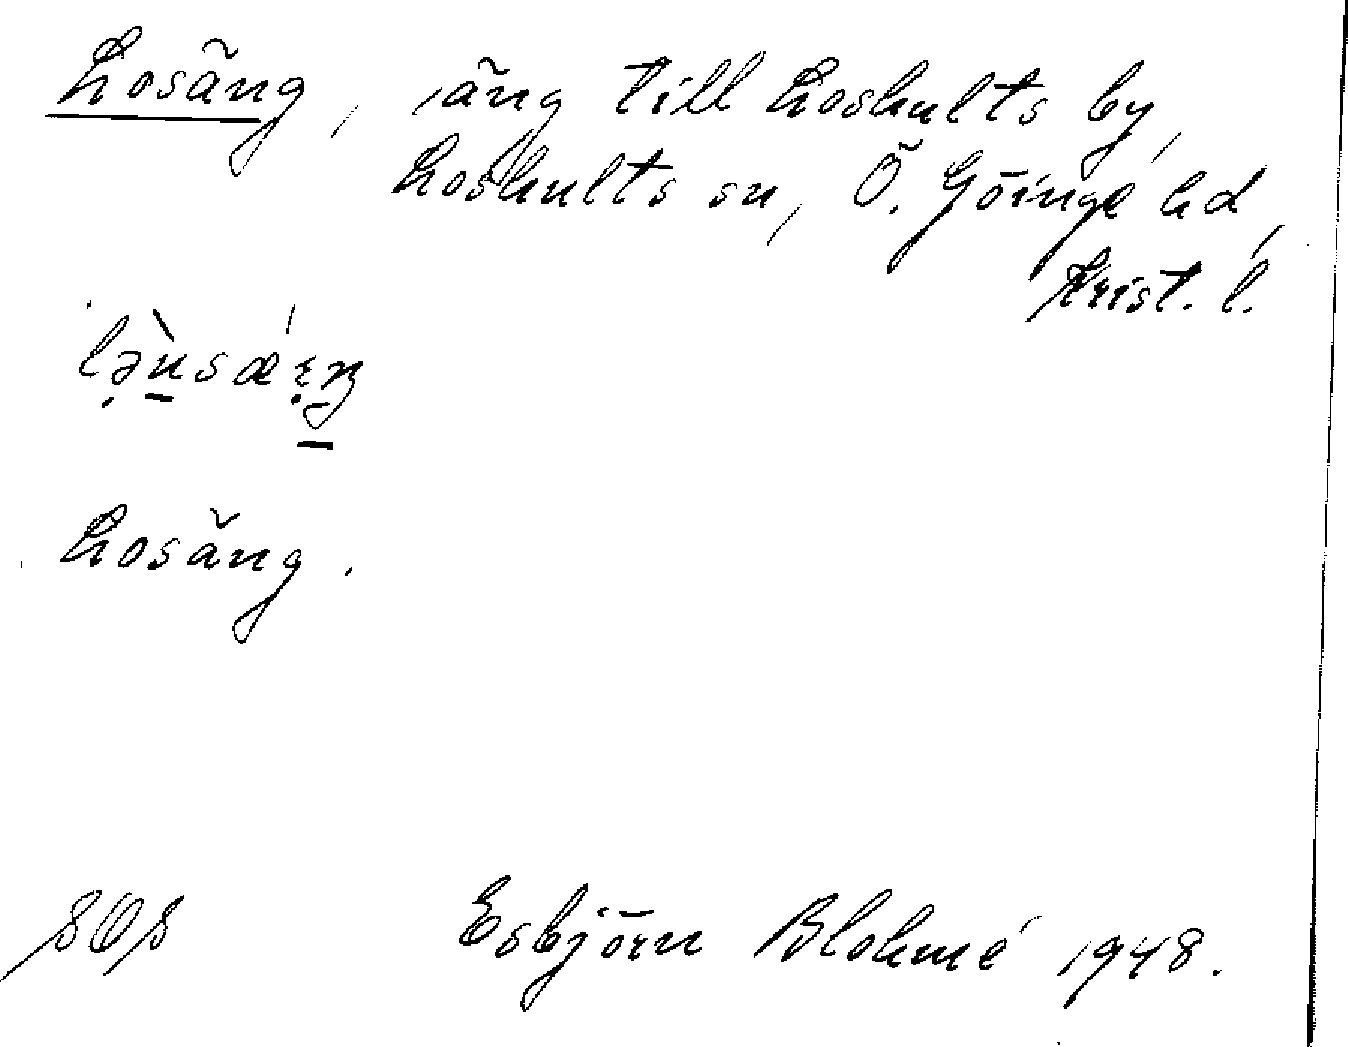 Losäng, äng till Loshults by,
Loshults sn, Ö. Göinge hd,
Krist. l.
Losäng.
Esbjörn Blohmé 1948.